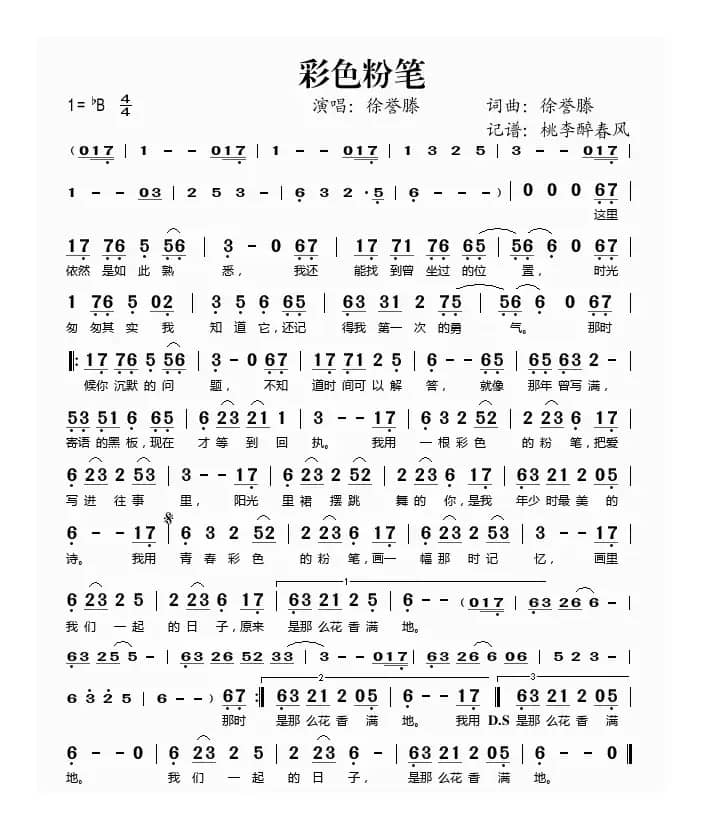 彩色粉笔
1=♭B 4/4 演唱：徐誉滕 词曲：徐誉滕
记谱：桃李醉春风
（017 | 1 - - 017 | 1 - - 017 | 1 - - 017 | 1 3 2 5 | 3 - - 017 |
1 - - 03 | 2 5 3 - | 6 3 2 · 5 | 6 - - ）| 0 0 0 67 |
这里
17 76 5 56 | 3 - 0 67 | 17 71 76 65 | 56 6 0 67 |
依然 是如 此 熟 悉， 我还 能找 到曾 坐过 的位 置， 时光
1 76 5 02 | 3 5 6 65 | 63 31 2 75 | 56 6 0 67 |
匆 匆其 实 我 知 道 它，还记 得我 第一 次 的勇 气。 那时
‖: 17 76 5 56 | 3 - 0 67 | 17 71 2 5 | 6 - - 65 | 65 63 2 - |
候你 沉默 的 问 题， 不知 道时 间可 以 解 答， 就像 那年 曾写 满，
53 51 6 65 | 6 23 21 1 | 3 - - 17 | 6 3 2 52 | 2 23 6 17 |
寄语 的黑 板，现在 才 等 到 回 执。 我用 一 根 彩 色 的 粉 笔，把爱
6 23 2 53 | 3 - - 17 | 6 23 2 52 | 2 23 6 17 | 63 21 2 05 |
写 进 往 事 里， 阳光 里 裙 摆 跳 舞 的 你，是我 年少 时最 美 的
6 - - 17 | 6 3 2 52 | 2 23 6 17 | 6 23 2 53 | 3 - - 17 |
诗。 我用 青 春 彩 色 的 粉 笔，画一 幅 那 时 记 忆， 画里
1
6 23 2 5 | 2 23 6 17 | 63 21 2 05 | 6 - - （017 | 63 26 6 - |
我 们 一 起 的 日 子，原来 是那 么花 香 满 地。
63 25 5 - | 63 26 52 33 | 3 - - 017 | 63 26 6 06 | 5 2 3 - |
2 3
6 3 2 5 | 6 - - ） 67 :‖ 63 21 2 05 | 6 - - 17 ‖ 63 21 2 05 |
那时 是那 么花 香 满 地。 我用 D.S 是那 么花 香 满
6 - - 0 | 6 23 2 5 | 2 23 6 - | 63 21 2 05 | 6 - - 0 ‖
地。 我 们 一 起 的 日 子， 是那 么花 香 满 地。